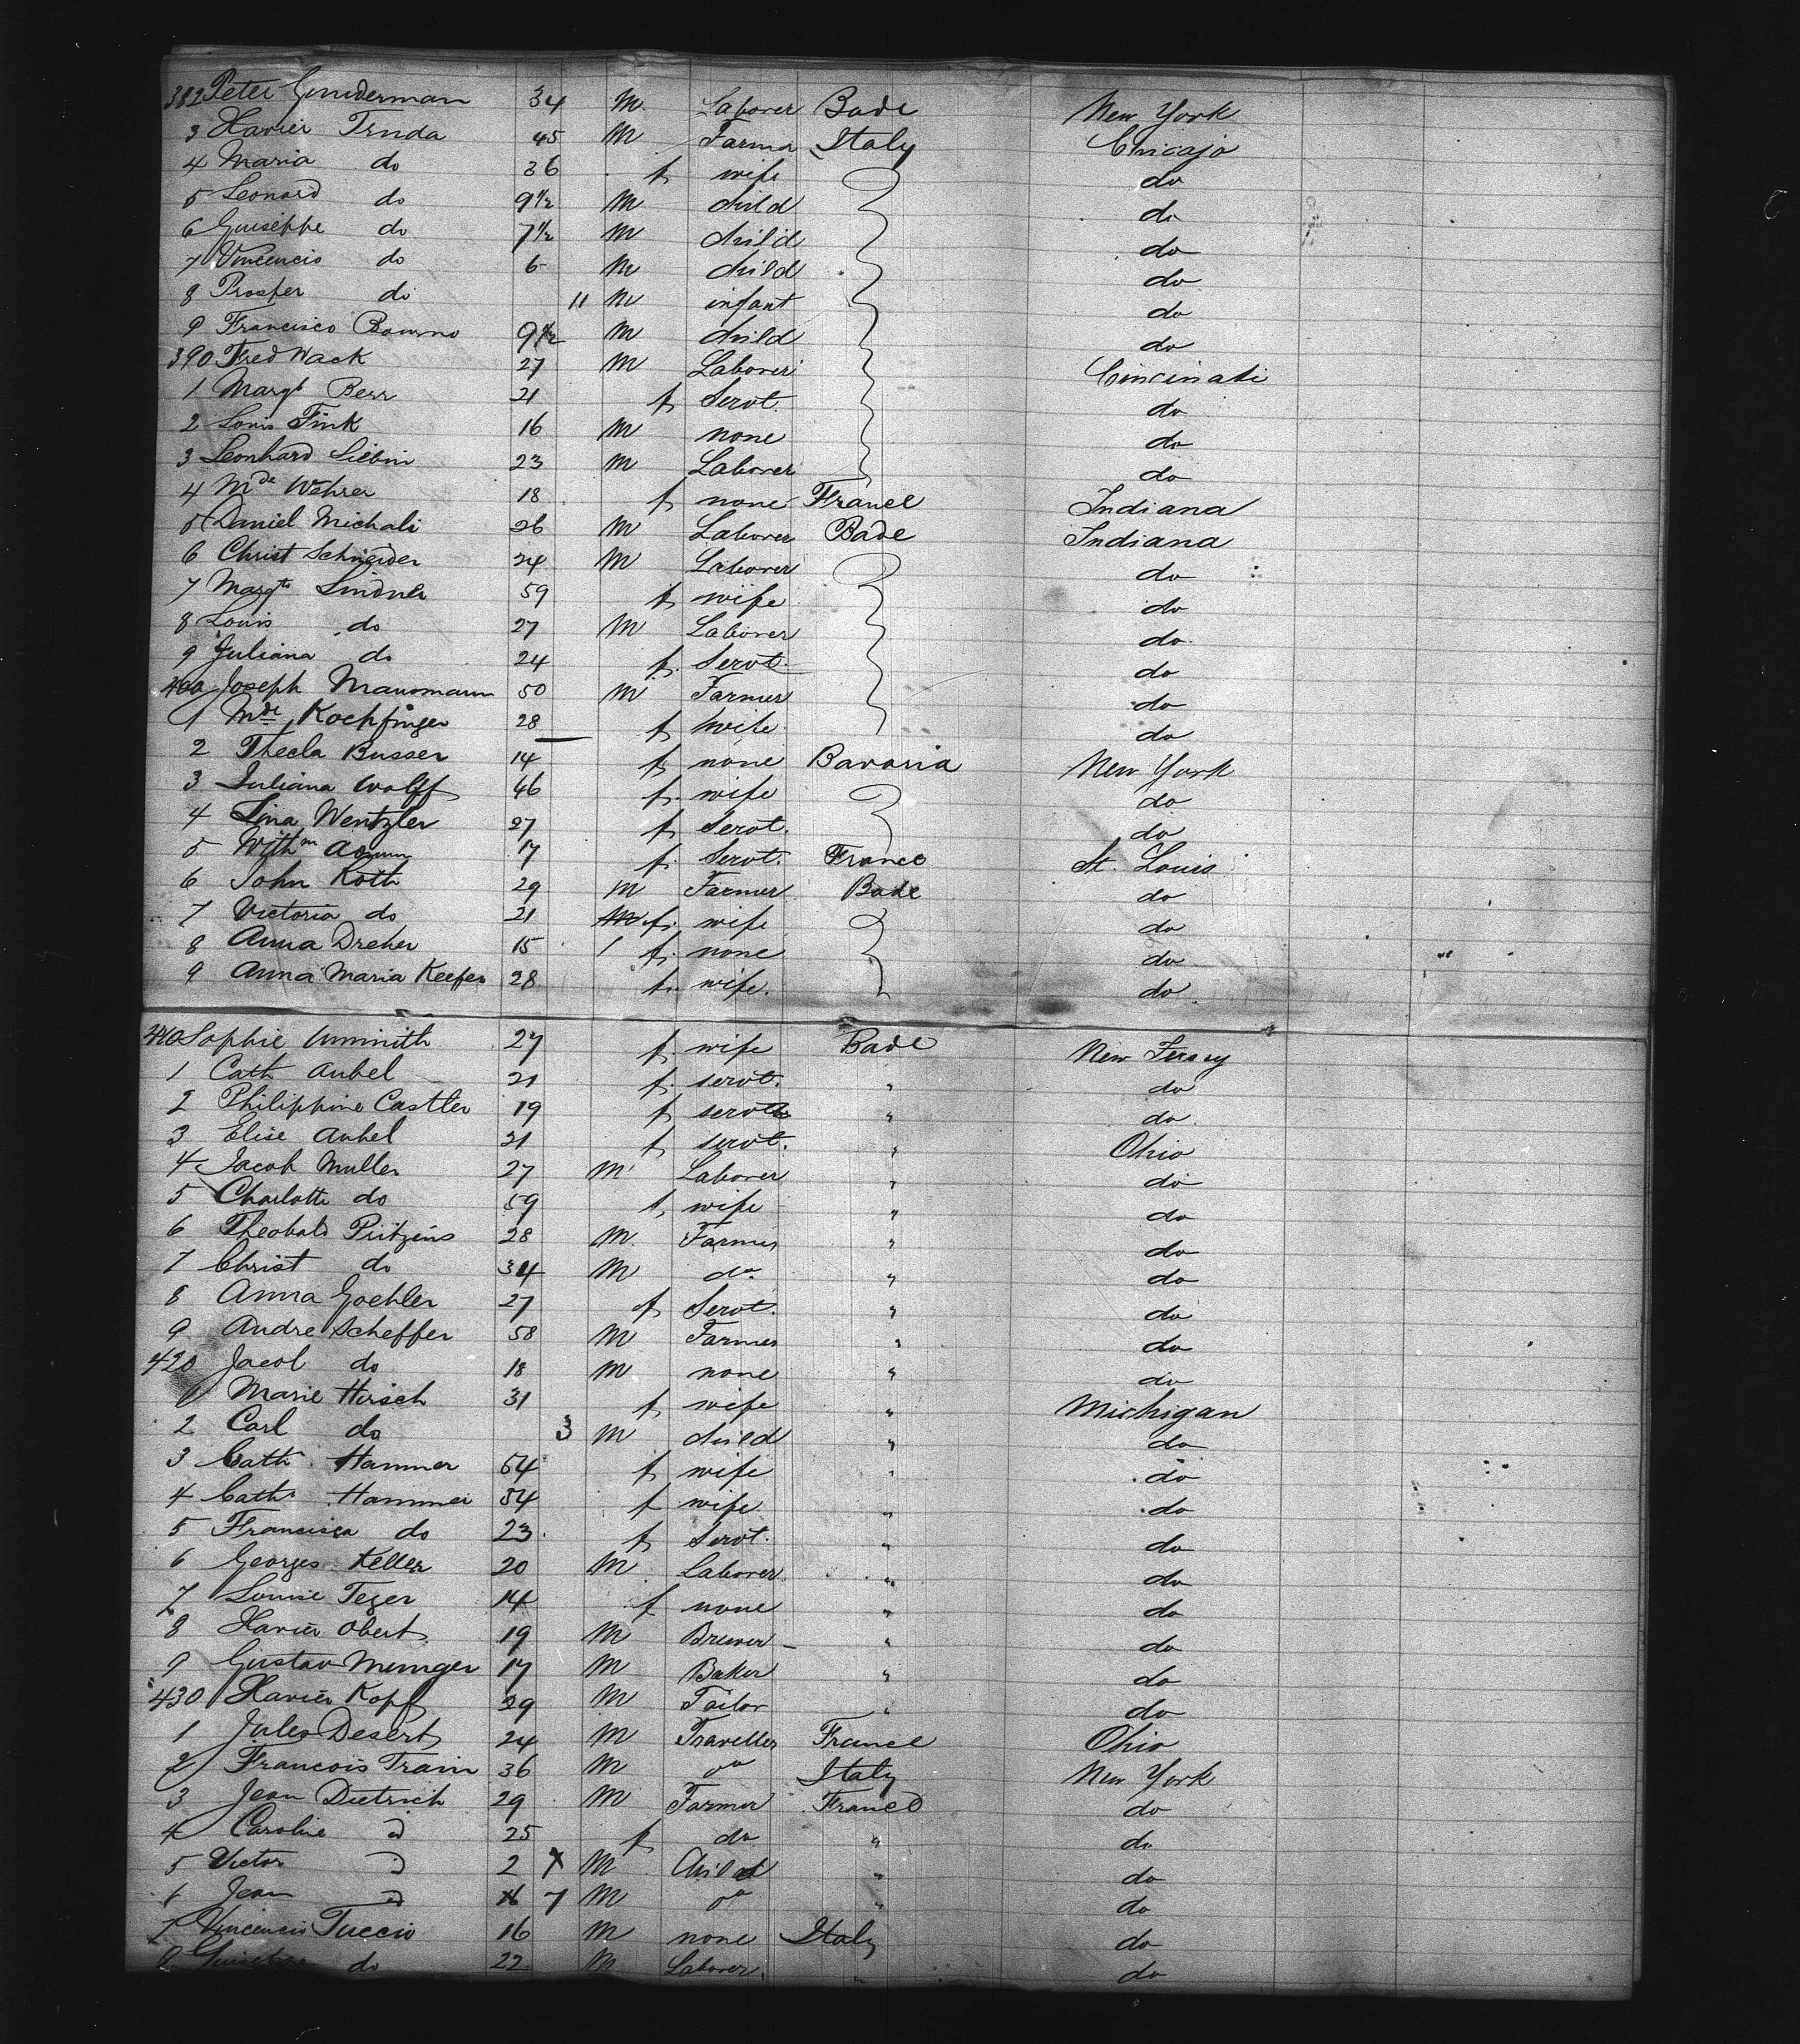 382 Peter Gunderman 34 M. Laborer Bade New York
3 Xavier Truda 45 M Farma Italy Chicajo
4 Maria do 36 f wife do
5 Leonard do 9 1/2 M child do
6 Guiseppe do 7 1/2 M child do
7 Vincencio do 6 M child do
8 Prosper do 11 M infant do
9 Francisco 9 1/2 M child do
390 Fred Wack 27 M Laborer Cincinati
1 Margt Berr 21 f Servt. do
2 Louis Fink 16 M none do
3 Leonhard 23 M Laborer do
4 Mde Wehrer 18 f none France Indiana
5 Daniel Michali 26 M Laborer Bade Indiana
6 Christ Schneider 24 M Laborer do
7 Margte Lindner 59 f wife do
8 Louis do 27 M Laborer do
9 Juliana do 24 f. Servt. do
400 Joseph Mausmann 50 M Farmer do
1 Mde Kochfinger 28 f wife do
2 Thecla Busser 14 f none Bavaria New York
3 Juliana Wolff 46 f. wife do
4 Lina Wentzler 27 f Servt. do
5 17 f. Servt. France St. Louis
6 John Roth 29 M Farmer Bade do
7 Victoria do 21 f. wife do
8 Anna Dreher 15 f. none do
9 Anna Maria Keefer 28 f. wife. do
410 Sophie 27 f. wife Bade New Jersey
1 Cath Aubel 21 f. servt. " do
2 Philippine Castler 19 f servt " do
3 Elise Aubel 21 f servt. " Ohio
4 Jacob Muller 27 M Laborer " do
5 Charlotte do 59 f wife " do
6 Theobald 28 M. Farmer " do
7 Christ do 34 M do " do
8 Anna Goehler 27 f Servt. " do
9 Andre Scheffer 58 M Farmer " do
420 Jacob do 18 M none " do
1 Marie Hirsch 31 f wife " Michigan
2 Carl do 3 M child " do
3 Cath Hammer 54 f wife " do
4 Cath. Hammer 54 f wife " do
5 Francisca do 23. f Servt. " do
6 Georges Keller 20 M Laborer " do
7 Louise Teger 14 f none " do
8 Xavier Obert 19 M Brewer " do
9 Gustav Menger 17 M Baker " do
430 Xavier Kopf 29 M Tailor " do
1 Jules Desert 24 M Traveller France Ohio
2 Francois Train 36 M do Italy New York
3 Jean Dietrich 29 M Farmer France do
4 Caroline d 25 f do " do
5 Victor d 2 M Child " do
6 Jean d 7 M do " do
7 Vincencio Tuccio 16 M none Italy do
8 Guiseppe do 22 M Laborer " do